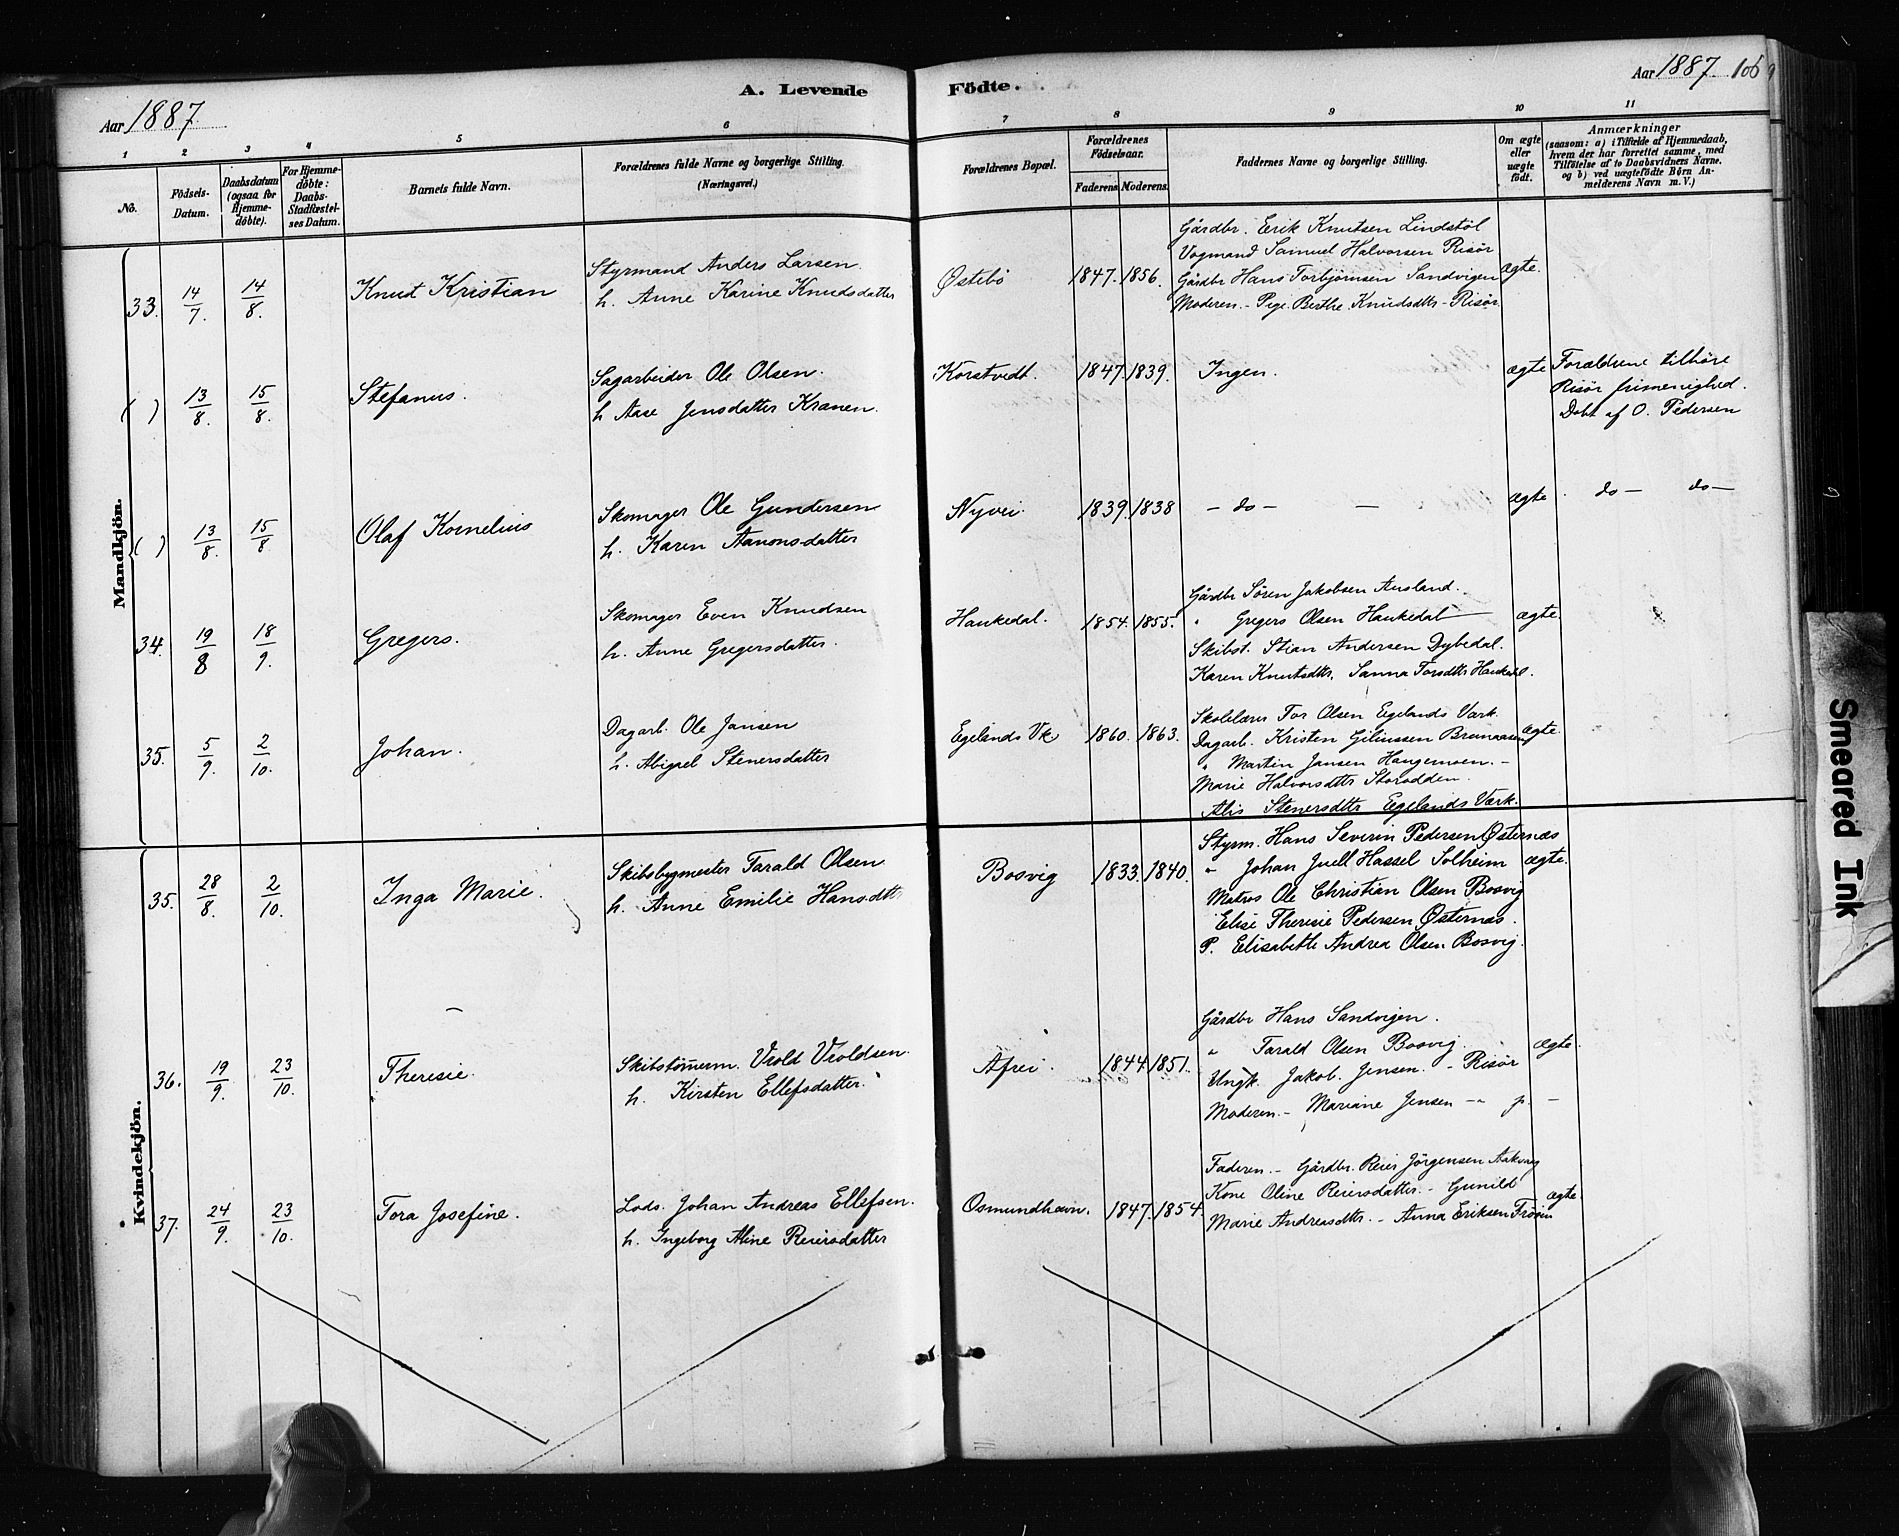 Aar 1887.
A. Levende Födte.
Aar 1887. 106
1 2 3 4 5 6 7 8 9 10 11
No.
Födsels-Datum.
Daabsdatum (ogsaa for Hjemme-döbte).
For Hjemme-döbte: Daabs-Stadfæstel-ses Datum.
Barnets fulde Navn.
Forældrenes fulde Navne og borgerlige Stilling. (Næringsvei.)
Forældrenes Bopæl.
Forældrenes Födselsaar.
Faderens. Moderens.
Faddernes Navne og borgerlige Stilling.
Om ægte eller uægte födt.
Anmærkninger
(saasom: a) i Tilfælde af Hjemmedaab,
hvem der har forrettet samme, med
Tilföielse af to Daabsvidners Navne.
og b) ved uægtefödte Börn An-
melderens Navn m. V.)
Mandkjön.
33. 14/7. 14/8. Knut Kristian
Styrmand Anders Larsen.
h. Anne Karine Knudsdatter
Østebö 1847. 1856.
Gårdbr. Erik Knutsen Lindstöl
Vogmand Samuel Halvorsen Risör
Gårdbr Hans Torbjørnsen Sandvigen
Moderen. - Pige Berthe Knudsdtr - Risör
ægte.
( ) 13/8. 15/8. Stefanus.
Sagarbeider Ole Olsen.
h. Aase Jensdatter Kranen.
Korstvedt. 1847. 1839. Ingen. ægte
Forældrene tilhöre
Risör frimenighed.
Döbt af O. Pedersen
( ) 13/8. 15/8 Olaf Kornelius
Skomager Ole Gundersen
h. Karen Aanonsdatter
Nyvei. 1839. 1838 - do - - ægte do - do -
34. 19/8 18/9. Gregers.
Skomager Even Knudsen
h. Anne Gregersdatter.
Haukedal. 1854. 1855.
Gårdbr Sören Jakobsen Ausland.
" Gregers Olsen Haukedal
Skibst. Stian Andersen Dybedal.
Karen Knutsdtr. Sanna Torsdtr Haukedal.
ægte.
35. 5/9. 2/10. Johan.
Dagarb. Ole Jansen
h. Abigael Stenersdatter
Egelands Vk. 1860. 1863.
Skolelærer Tor Olsen Egelands Værk.
Dagarb. Kristen Giliussen Brunaasen
" Martin Jansen Haugemoen. -
Marie Halvorsdtr Storodden.
Alis Stenersdtr Egelands Værk.
ægte.
Kvindekjön.
35. 28/8. 2/10. Inga Marie.
Skibsbygmester Tarald Olsen
h. Anne Emilie Hansdtr
Bosvig 1833. 1840.
Styrm. Hans Severin Pedersen Østernæs
" Johan Juell Hassel Solheim
Matros Ole Christian Olsen Bosvig
Elise Theresie Pedersen Østernæs.
P. Elisabeth Andrea Olsen Bosvig.
ægte.
36. 19/9. 23/10. Theresie.
Skibstömerm. Vrold Vroldsen.
h. Kirsten Ellefsdatter.
Afrei. 1844. 1851.
Gårdbr Hans Sandvigen.
" Tarald Olsen Bosvig.
Ungk. Jakob Jensen. - Risör
Moderen. - Mariane Jensen - " p. -
ægte.
37. 24/9. 23/10. Tora Josefine.
Lods. Johan Andreas Ellefsen.
h. Ingeborg Aline Reiersdatter
Osmundhavn. 1847. 1854.
Faderen. - Gårdbr. Reier Jörgensen Aakvag
Kone Oline Reiersdatter. - Gunild
Marie Andreasdtr. - Anna Eriksen
ægte.
Smeared Ink